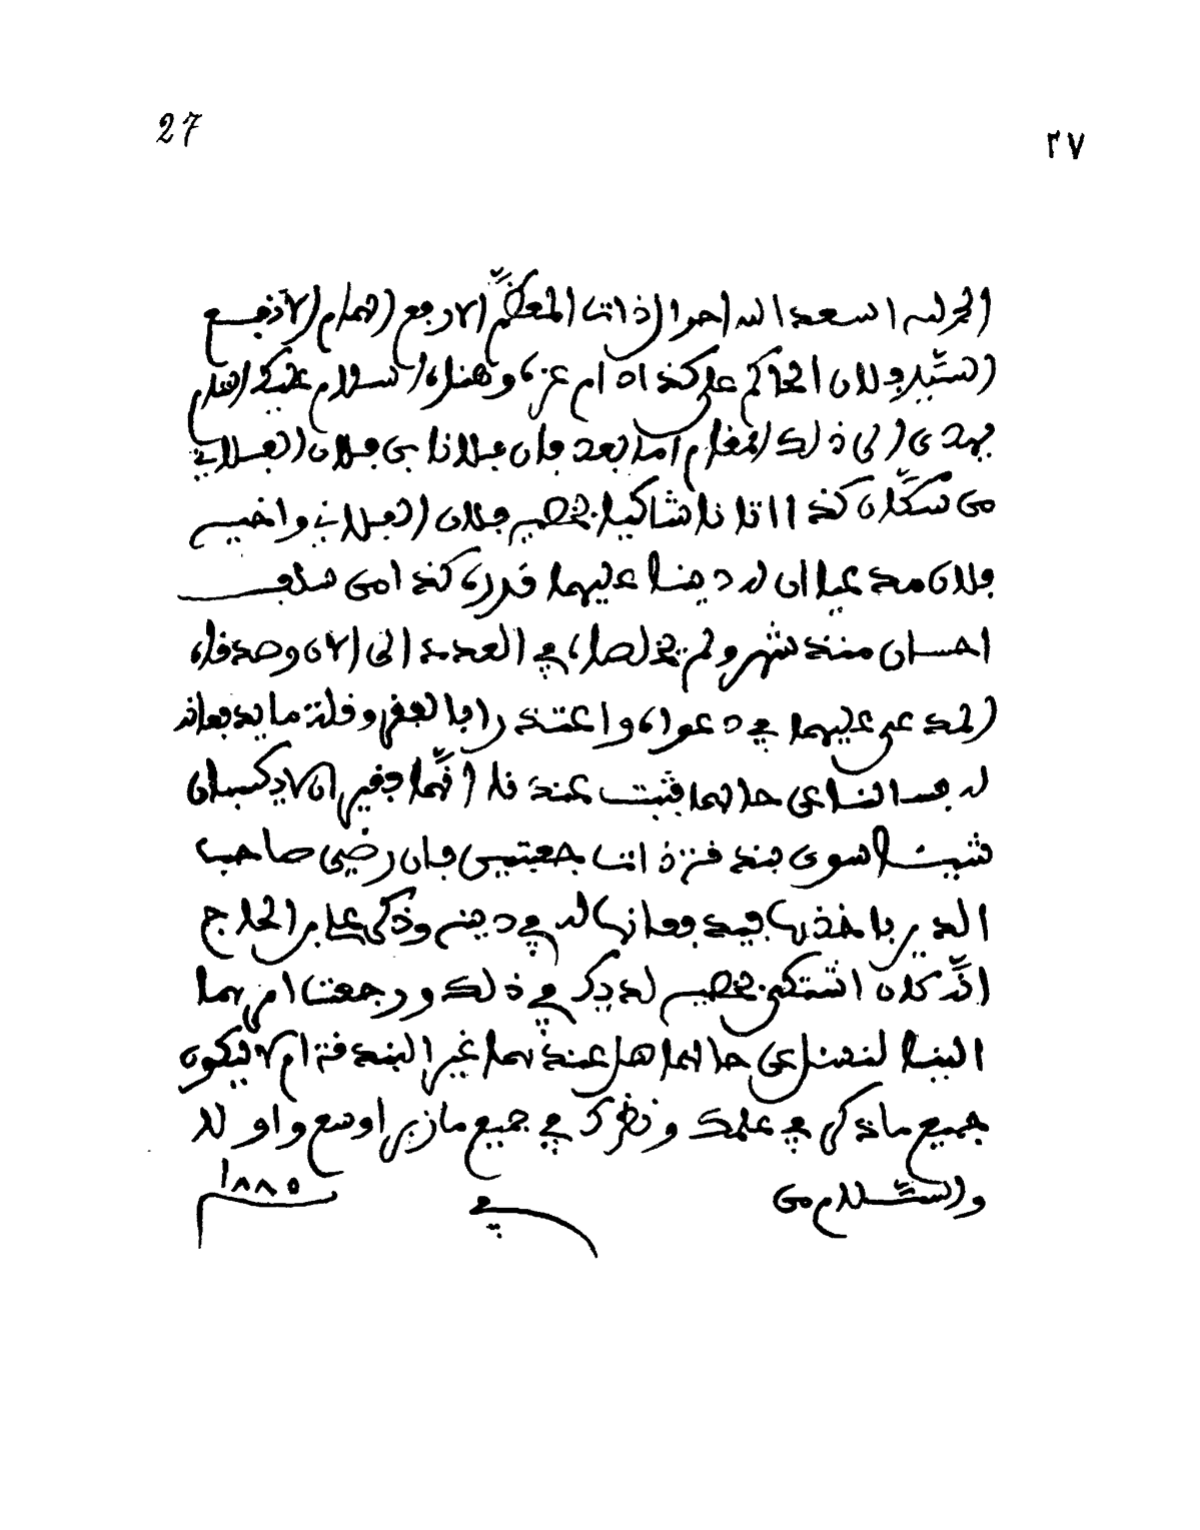 27
٢٧
الحمد لله اسعد الله احوال ذات المعظم الارفع الهمام الانفع
السيد فلان الحاكم على كذا ادام عزه وهناه السلام عليكم التام
يهدى الى ذلك المقام اما بعد فان فلانا بن فلان الفلاني
من سكان كذا اتانا شاكيا بخصيم فلان الفلاني واخيه
فلان مدعيا ان له دينا عليهما قدره كذا من سلف
احسان منذ شهر ولم يخلصاه في العدة الى الان وصدقاه
المدعى عليهما في دعواه واعتذرا بالفقر وقلة ما يدفعانه
له فسالنا عن حالهما فثبت عندنا انهما فقيران لا يكسبان
شيئا سوى بندقة ذات جعبتين فان رضي صاحب
الدين ياخذها بقيمة دفعانها له في دينه وذكر عابر الحاج
انه كان اشتكى بخصيمه لديك في ذلك ورجعت امرهما
الينا لنسال عن حالهما هل عندهما غير البندقة ام لا ليكون
جميع ما ذكر في علمك ونظرك في جميع ما نرى اوسع واولى
والسلام من في ١٨٨٥